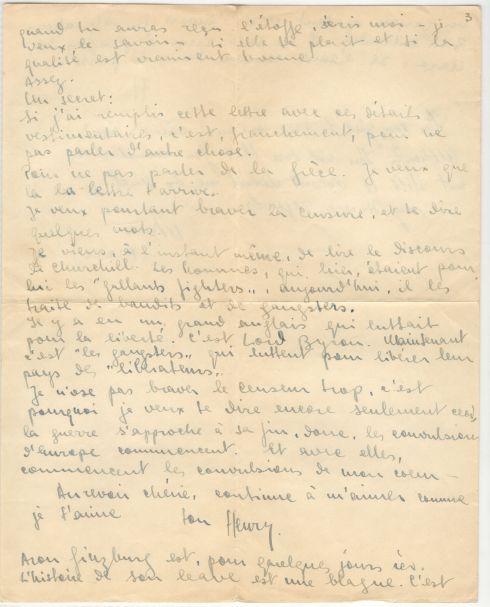 3
quand tu auras reçu l'étoffe, écris moi - je
veux le savoir - si elle te plait et si la
qualité est vraiment bonne
Assez.
Un secret:
Si j'ai remplis cette lettre avec ces détails
vestimentaires, c'est, franchement, pour ne
pas parler d'autre chose.
Pour ne pas parler de la Grèce. Je veux que
la lettre t'arrive.
Je veux pourtant braver la censure, et te dire
quelques mots
Je viens, à l'instant même, de lire le discours
de Churchill. Les hommes, qui, hier, étaient pour
lui les "gallants fighters", aujourd'hui, il les
traite de bandits et de gangsters.
Il y a eu un grand anglais qui luttait
pour la liberté. C'est Lord Byron. Maintenant
c'est "les gangsters" qui luttent pour libérer leur
pays des "libérateurs".
Je n'ose pas braver le censeur trop, c'est
pourquoi je veux te dire encore seulement ceci,
la guerre s'approche à sa fin, donc, les convulsions
d'Europe commencent. Et avec elles,
commencent les convulsions de mon coeur -
Aurevoir chérie, continue à m'aimer comme
je t'aime ton Henry.
Aron Ginzburg est, pour quelques jours ici.
L'histoire de son leave est une blague. C'est